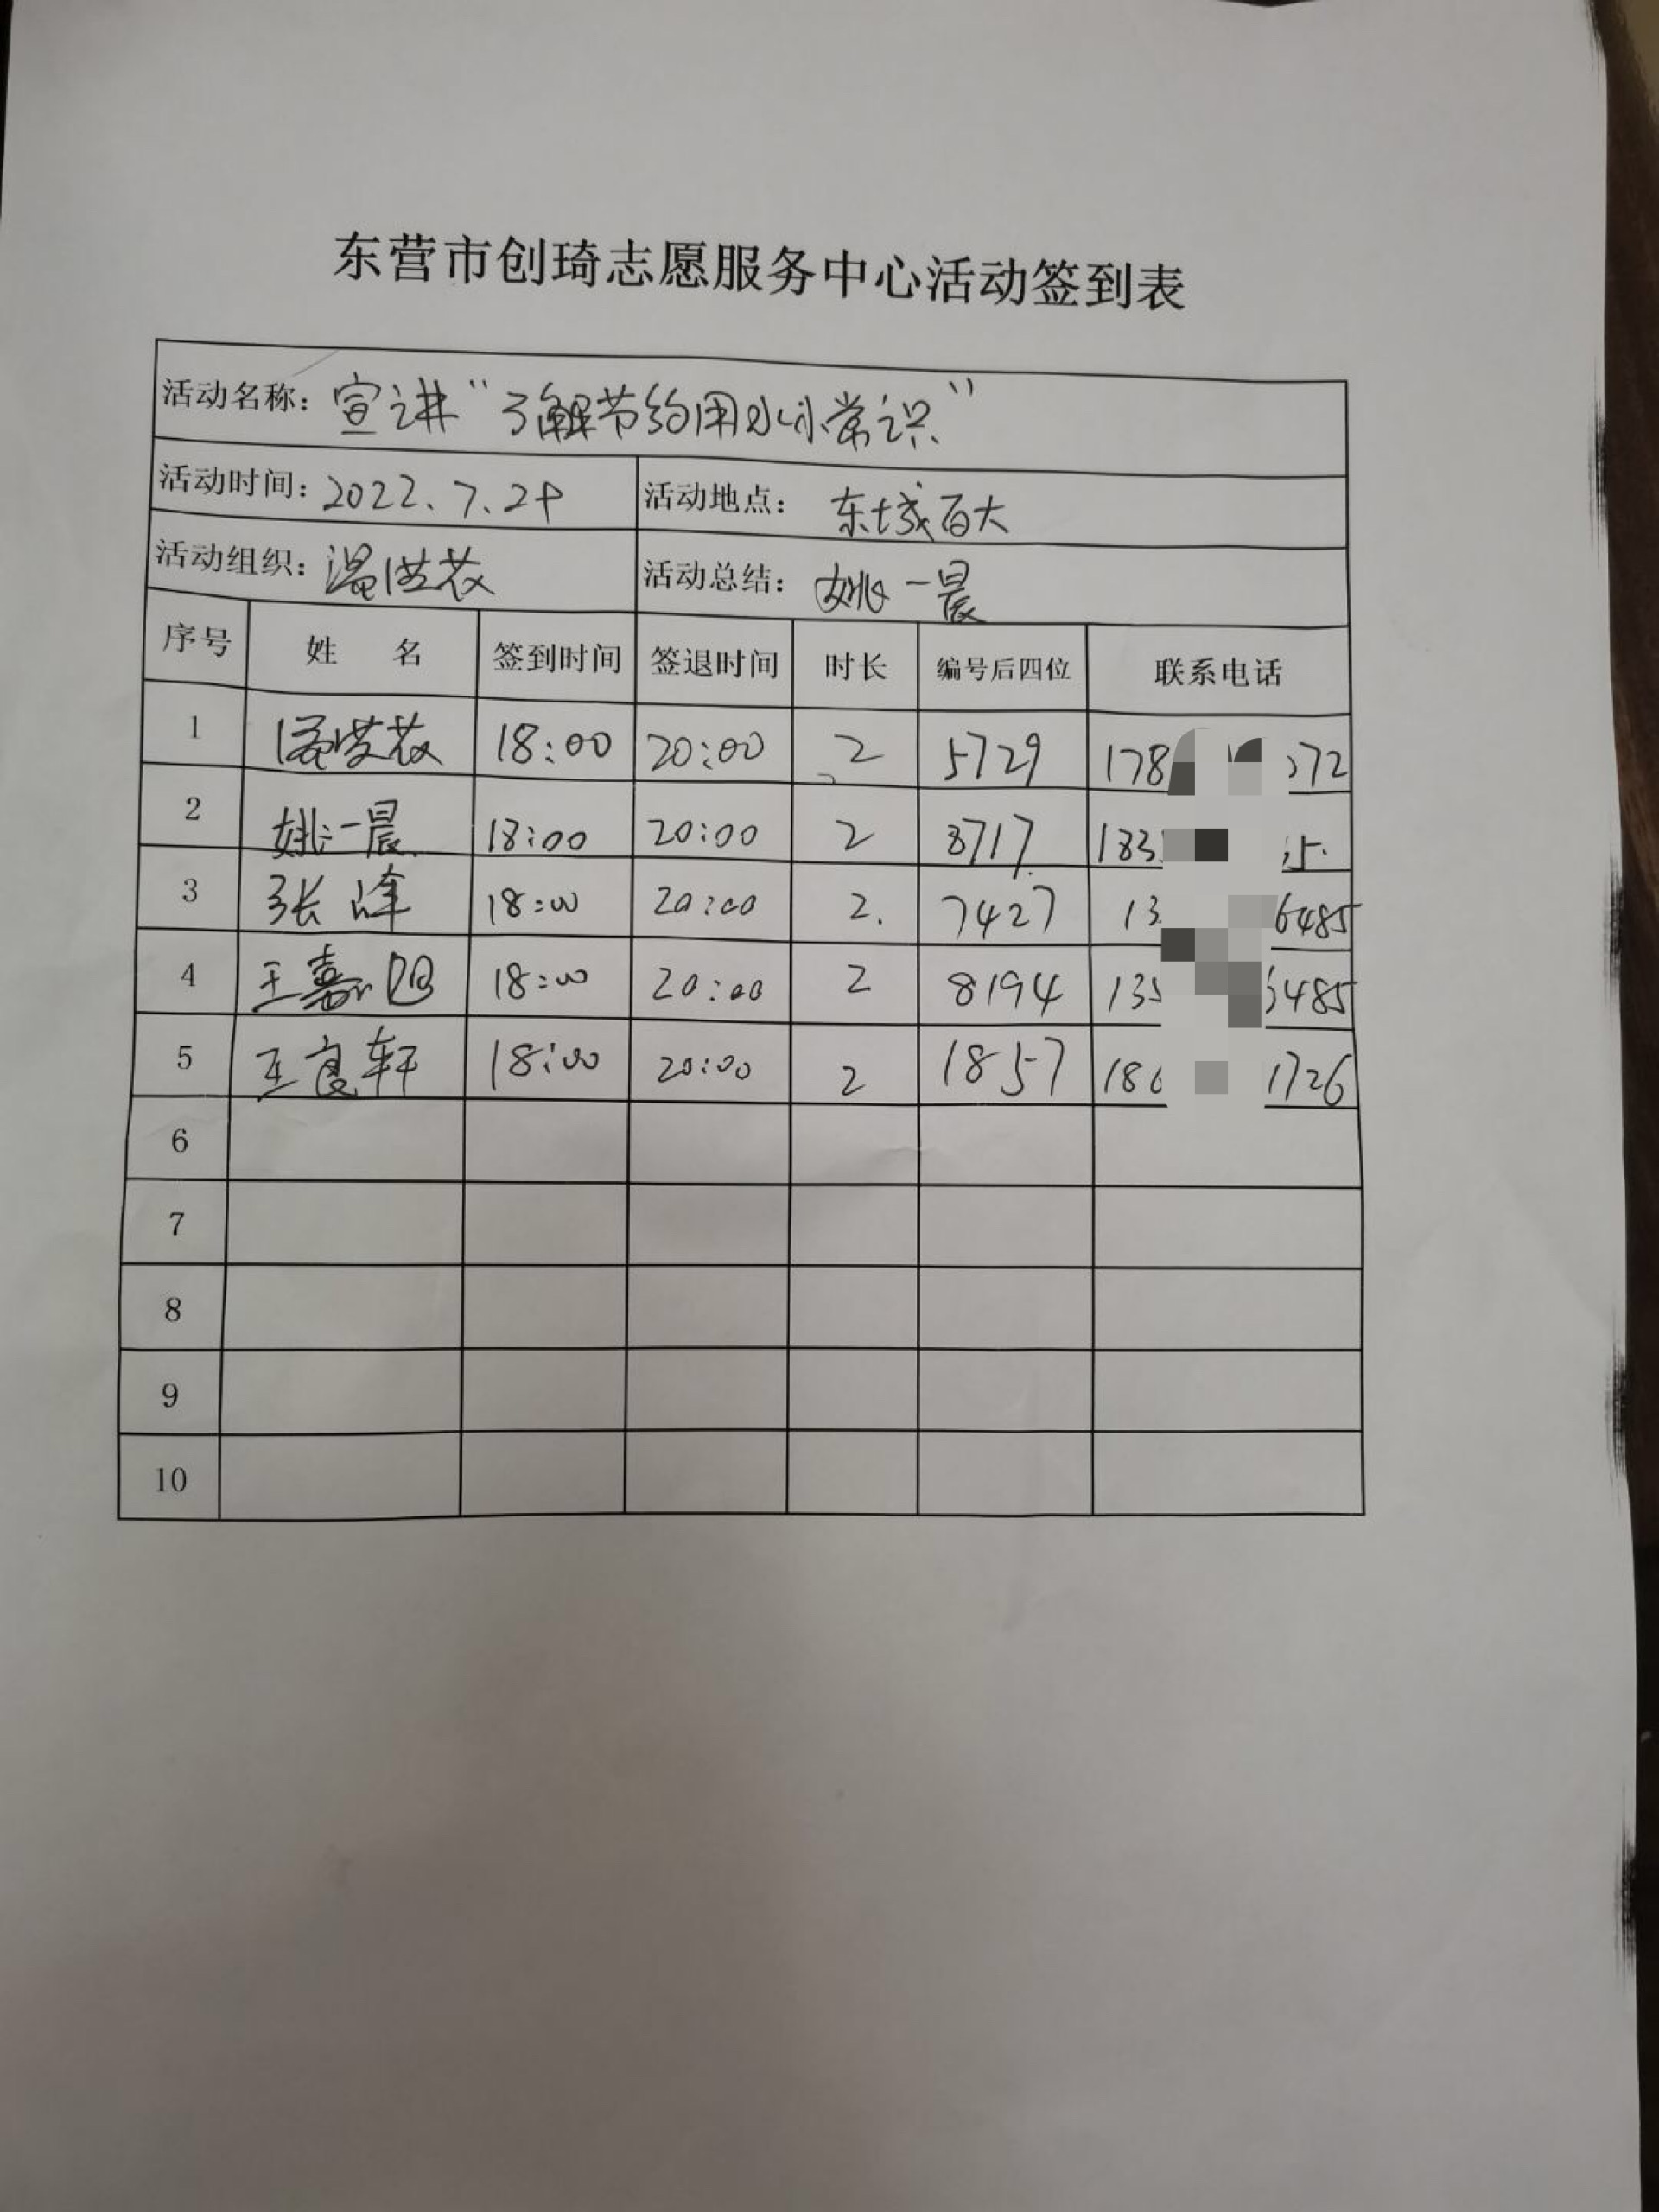 东营市创琦志愿服务中心活动签到表
活动名称：宣讲“了解节约用水小常识”
活动时间：2022.7.29 活动地点：东城百大
活动组织： 活动总结：姚一晨
序号 姓 名 签到时间 签退时间 时长 编号后四位 联系电话
1 18:00 20:00 2 5729 178 72
2 姚一晨 18:00 20:00 2 8717 183
3 张峰 18:00 20:00 2. 7427 13 6485
4 王嘉旭 18:00 20:00 2 8194 13 485
5 王良轩 18:00 20:00 2 1857 18 1726
6
7
8
9
10